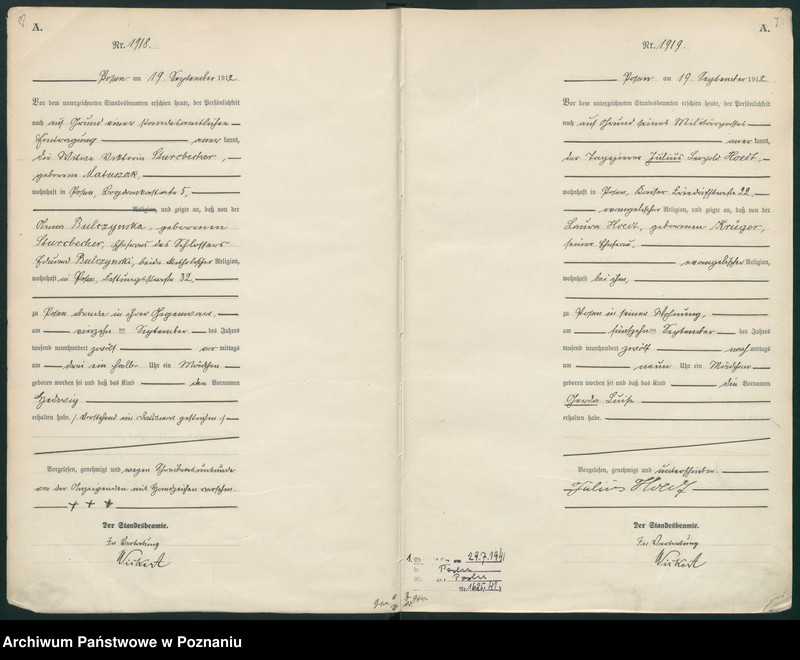 A.
Nr. 1918.
Posen am 19. September 1912
Vor dem unterzeichneten Standesbeamten erschien heute, der Persönlichkeit
nach auf Grund einer standesamtlichen
Eintragung anerkannt,
die Witwe Viktoria Sturcbecher,
geborene Matuszak,
wohnhaft in Posen, 5,
Religion, und zeigte an, daß von der
Anna Bulczynska, geborenen
Sturcbecher, Ehefrau des Schlossers
Eduard Bulczynski, beide katholischer Religion,
wohnhaft in Posen, 32,
zu Posen in ihrer Gegenwart
am vierzehnten September des Jahres
tausend neunhundert zwölf vormittags
um drei ein halb Uhr ein Mädchen
geboren worden sei und daß das Kind den Vornamen
Hedwig
erhalten habe. gestrichen
Vorgelesen, genehmigt und wegen Schreibensunkunde
von der Anzeigenden mit Handzeichen versehen
+ + +
Der Standesbeamte.
In Vertretung
A.
Nr. 1919.
Posen am 19. September 1912
Vor dem unterzeichneten Standesbeamten erschien heute, der Persönlichkeit
nach auf Grund seines Militärpasses
anerkannt,
der Tapezierer Julius Hoedt,
wohnhaft in Posen, Kaiser Friedrichstraße 22,
evangelischer Religion, und zeigte an, daß von der
Laura Hoedt, geborenen Krüger,
seiner Ehefrau,
evangelischer Religion,
wohnhaft bei ihm,
zu Posen in seiner Wohnung,
am fünfzehnten September des Jahres
tausend neunhundert zwölf nachmittags
um neun Uhr ein Mädchen
geboren worden sei und daß das Kind die Vornamen
Gerda Luise
erhalten habe.
Vorgelesen, genehmigt und unterschrieben
Julius Hoedt
Der Standesbeamte.
In Vertretung
1. 29.7.1941
Posen
Posen
Nr. 1625/41
Archiwum Państwowe w Poznaniu